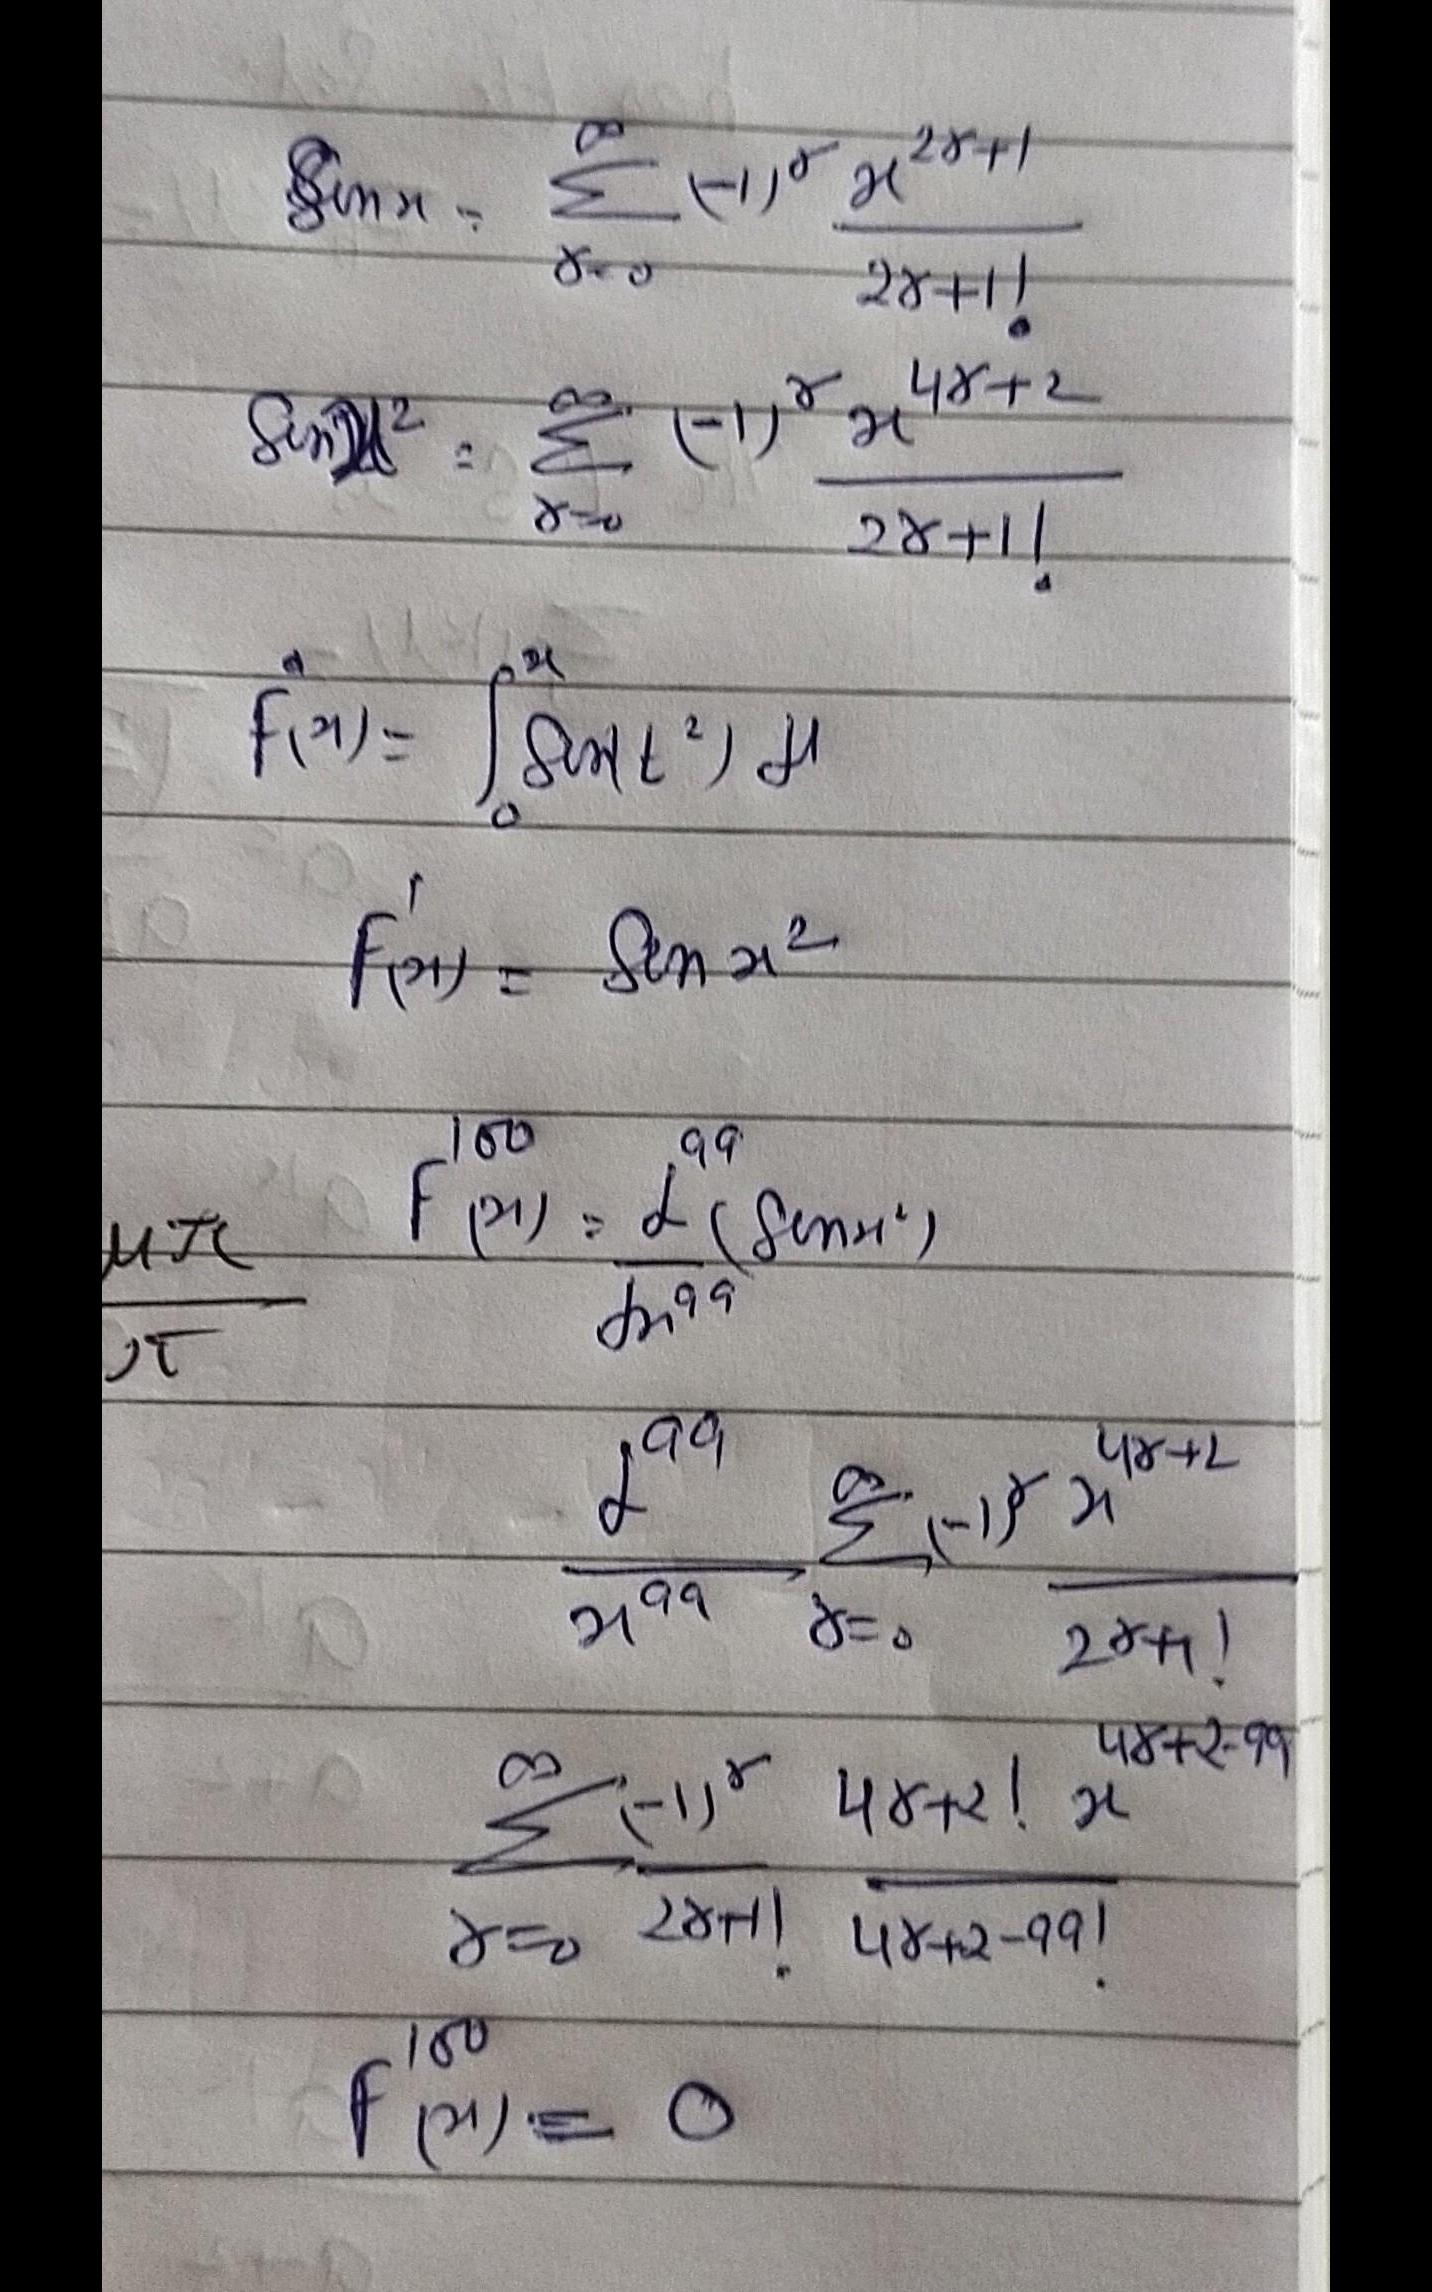 Sin x = ∞ Σ r=0 (-1)^r x^{2r+1} / 2r+1!
Sin x² = ∞ Σ r=0 (-1)^r x^{4r+2} / 2r+1!
F(x) = ∫_0^x Sin(t²) dt
F'(x) = Sin x²
F^{100}(x) = d^{99} / dx^{99} (Sin x²)
d^{99} / x^{99} ∞ Σ r=0 (-1)^r x^{4r+2} / 2r+1!
∞ Σ r=0 (-1)^r / 2r+1! 4r+2! x^{4r+2-99} / 4r+2-99!
F^{100}(x) = 0